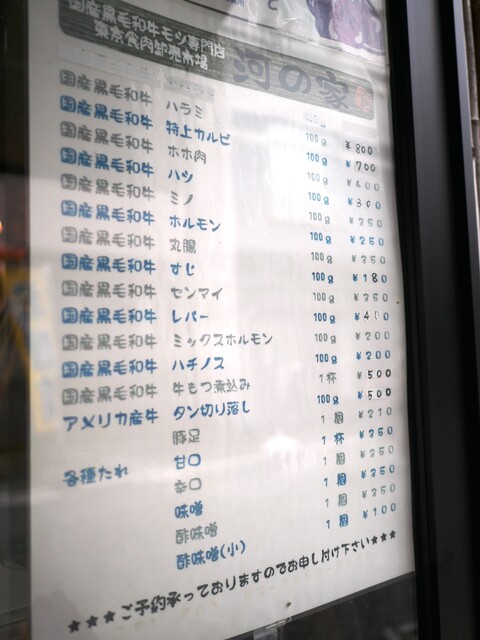 国産黒毛和牛モツ専門店
東京食肉卸売市場
河の家
国産黒毛和牛 ハラミ 100g ¥800
国産黒毛和牛 特上カルビ 100g ¥700
国産黒毛和牛 ホホ肉 100g ¥400
国産黒毛和牛 ハツ 100g ¥300
国産黒毛和牛 ミノ 100g ¥350
国産黒毛和牛 ホルモン 100g ¥250
国産黒毛和牛 丸腸 100g ¥350
国産黒毛和牛 すじ 100g ¥180
国産黒毛和牛 センマイ 100g ¥350
国産黒毛和牛 レバー 100g ¥400
国産黒毛和牛 ミックスホルモン 100g ¥200
国産黒毛和牛 ハチノス 100g ¥200
国産黒毛和牛 牛もつ煮込み 1杯 ¥500
アメリカ産牛 タン切り落し 100g ¥500
豚足 1個 ¥210
各種たれ 甘口 1杯 ¥350
辛口 1個 ¥350
味噌 1個 ¥350
酢味噌 1個 ¥350
酢味噌(小) 1個 ¥100
★★★ご予約承っておりますのでお申し付け下さい★★★